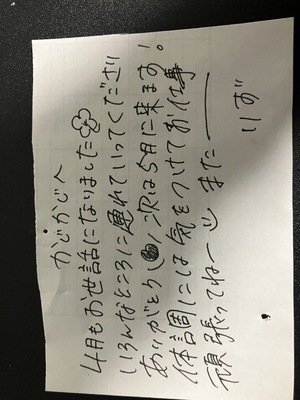 かじかじへ
4月もお世話になりました
いろんなところに連れていってください
ありがとう 次は5月に来ます!
体調には気をつけてお仕事
頑張ってねー また
りず